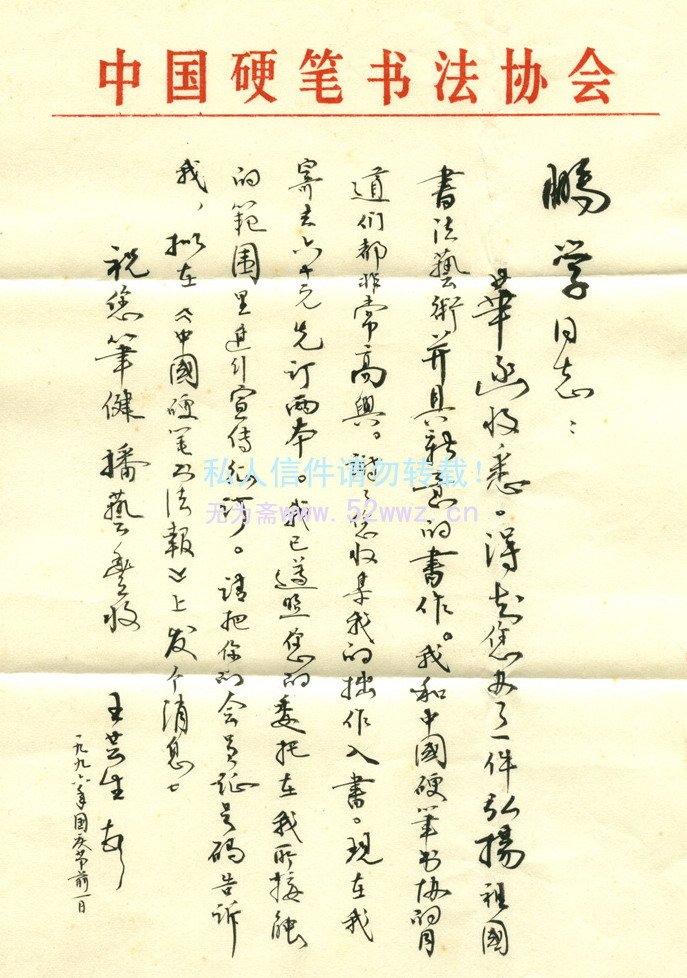 中国硬笔书法协会
鹏学同志：
華函收悉。得知您办了一件弘揚祖國
書法藝術并具新意的書作。我和中國硬筆书协的同
道们都非常高興。謝了您收集我的拙作入書。现在我
寄去六十元先订两本。我已遵照您的委托在我所接触
的範围里進行宣传征订。請把你的会员证号码告訴
我，拟在《中國硬笔书法報》上发个消息。
祝您筆健播藝豐收
王芸生
一九九六年国庆节前一日
私人信件请勿转载！
无为斋www.52wwz.cn